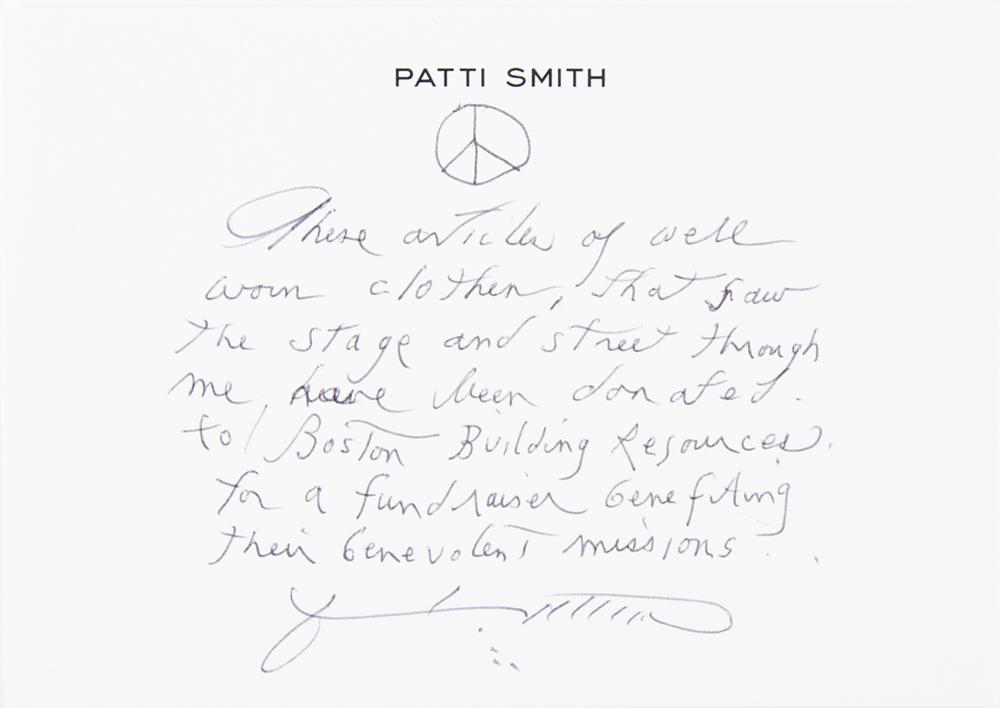 PATTI SMITH
These articles of well
worn clothes, that saw
the stage and street through
me, have been donated
to Boston Building Resources.
for a fundraiser benefiting
their benevolent missions.